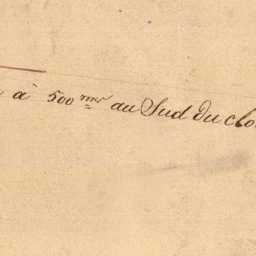 à 500 mes au Sud du clo